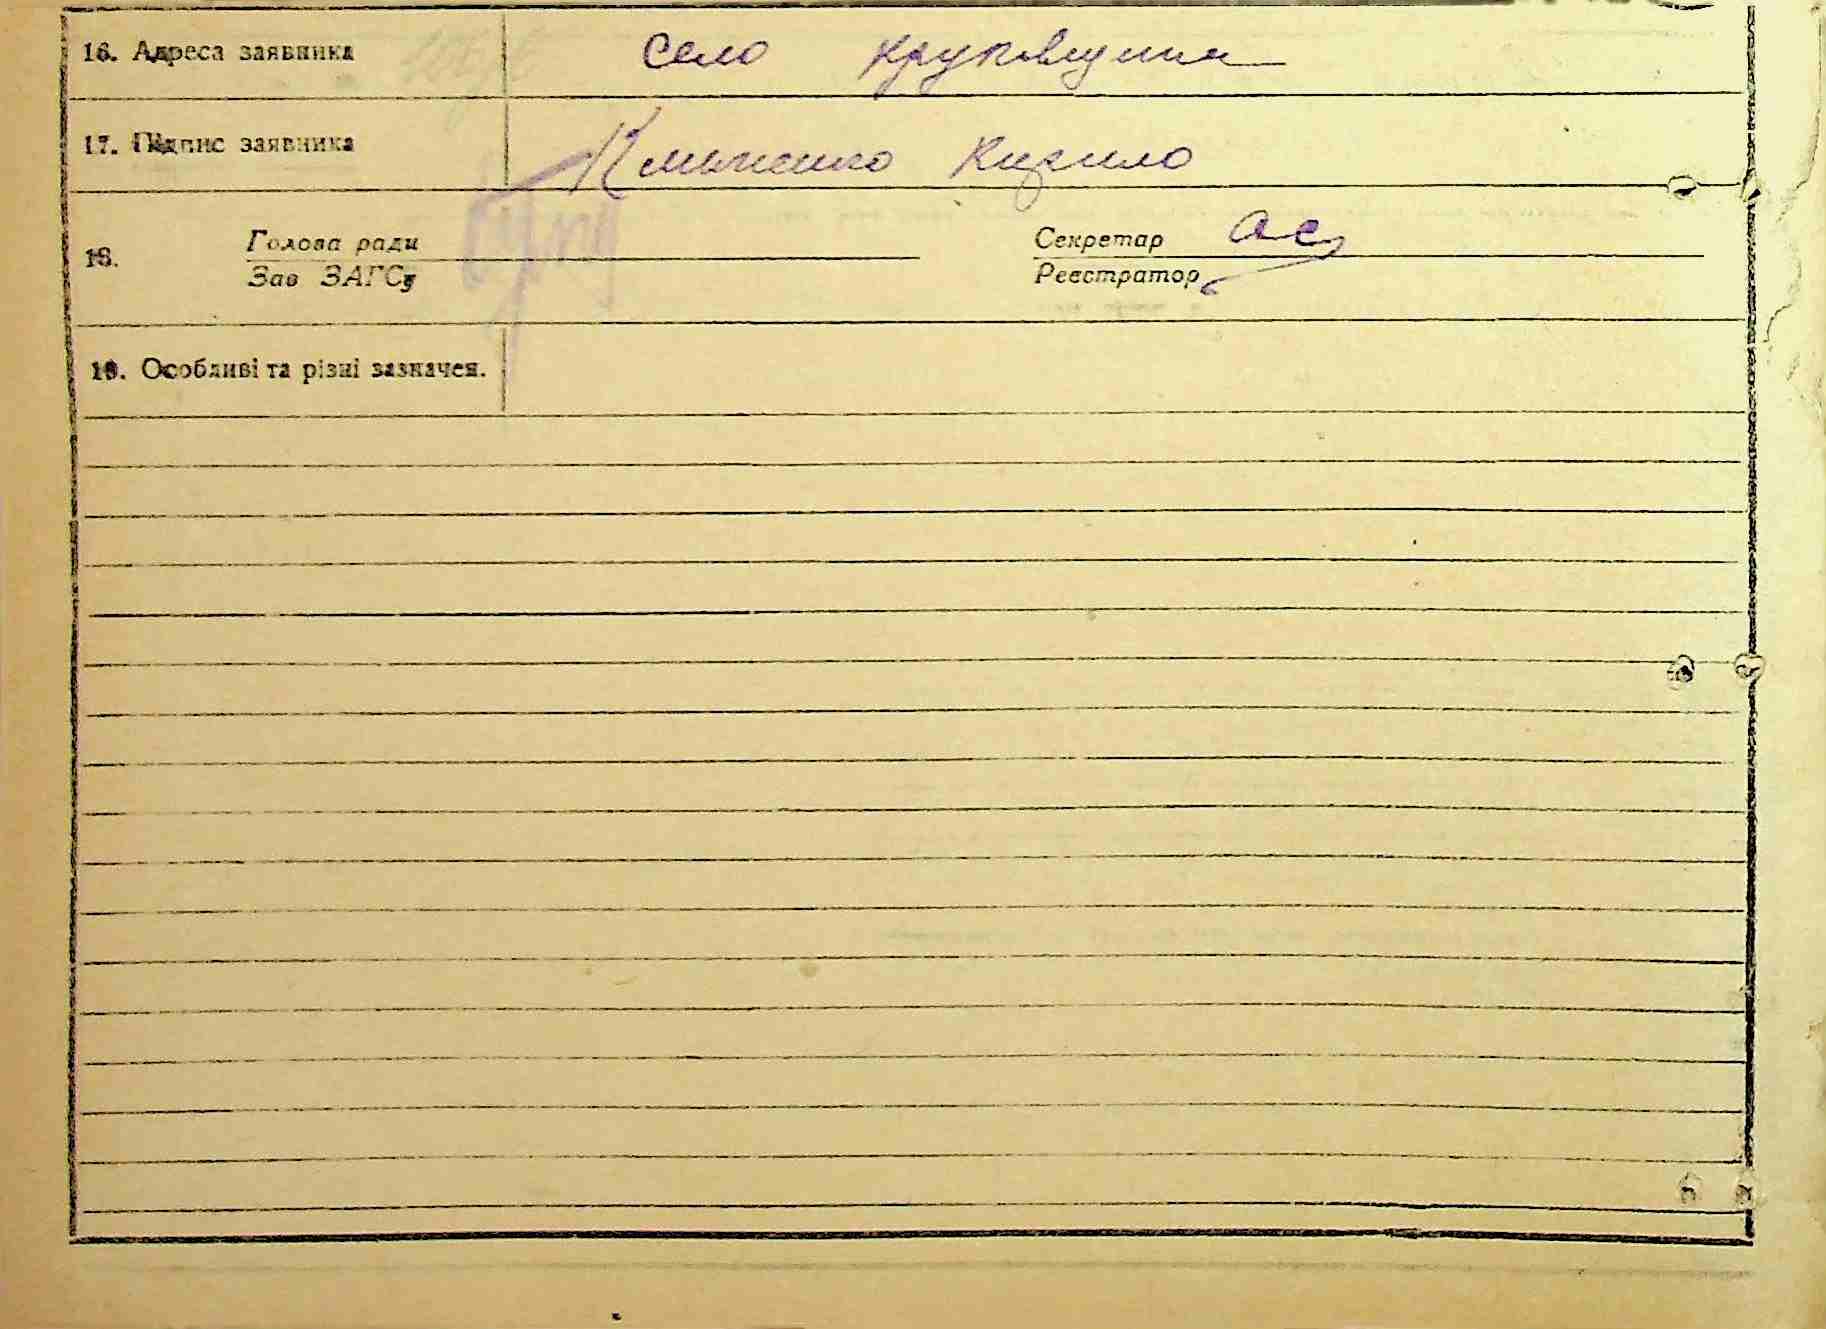 16. Адреса заявника село Круповщина
17. Підпис заявника Клименко Кирило
18. Голова ради Секретар
Зав ЗАГСу Реєстратор
19. Особливі та різні зазначен.